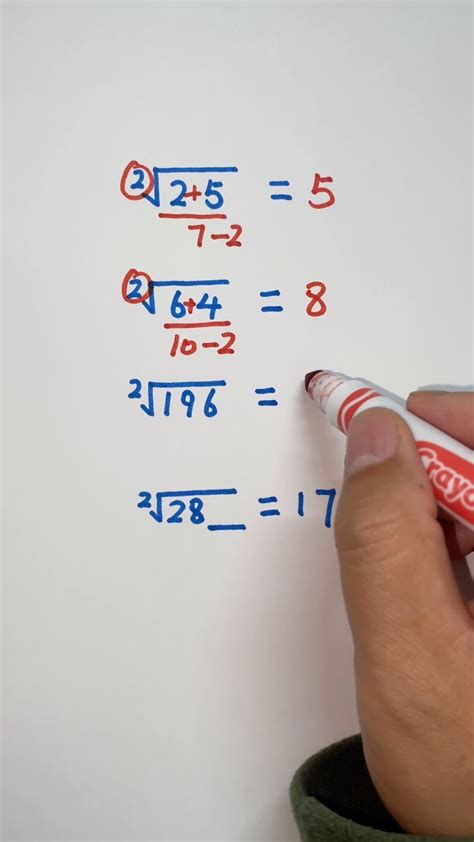 ²√2+5 = 5
7-2
²√6+4 = 8
10-2
²√196 =
²√28_ = 17
Crayo